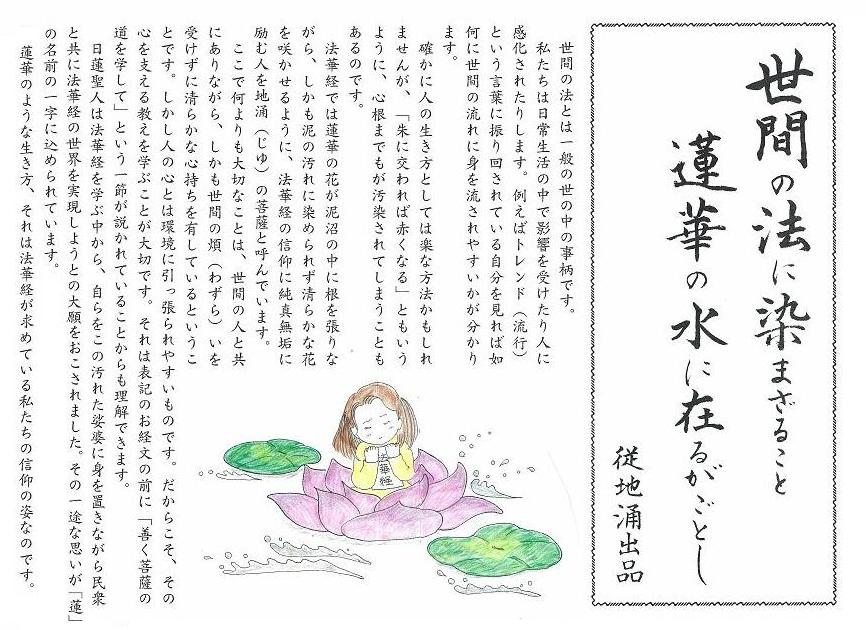 世間の法に染まざること
蓮華の水に在るがごとし
従地涌出品
世間の法とは一般の世の中の事柄です。
私たちは日常生活の中で影響を受けたり人に
感化されたりします。例えばトレンド（流行）
という言葉に振り回されている自分を見れば如
何に世間の流れに身を流されやすいかが分かり
ます。
確かに人の生き方としては楽な方法かもしれ
ませんが、「朱に交われば赤くなる」ともいう
ように、心根までもが汚染されてしまうことも
あるのです。
法華経では蓮華の花が泥沼の中に根を張りな
がら、しかも泥の汚れに染められず清らかな花
を咲かせるように、法華経の信仰に純真無垢に
励む人を地涌（じゆ）の菩薩と呼んでいます。
ここで何よりも大切なことは、世間の人と共
にありながら、しかも世間の煩（わずら）いを
受けずに清らかな心持ちを有しているというこ
とです。しかし人の心とは環境に引っ張られやすいものです。だからこそ、その
心を支える教えを学ぶことが大切です。それは表記のお経文の前に「善く菩薩の
道を学して」という一節が説かれていることからも理解できます。
日蓮聖人は法華経を学ぶ中から、自らをこの汚れた娑婆に身を置きながら民衆
と共に法華経の世界を実現しようとの大願をおこされました。その一途な思いが「蓮」
の名前の一字に込められています。
蓮華のような生き方、それは法華経が求めている私たちの信仰の姿なのです。
法華経